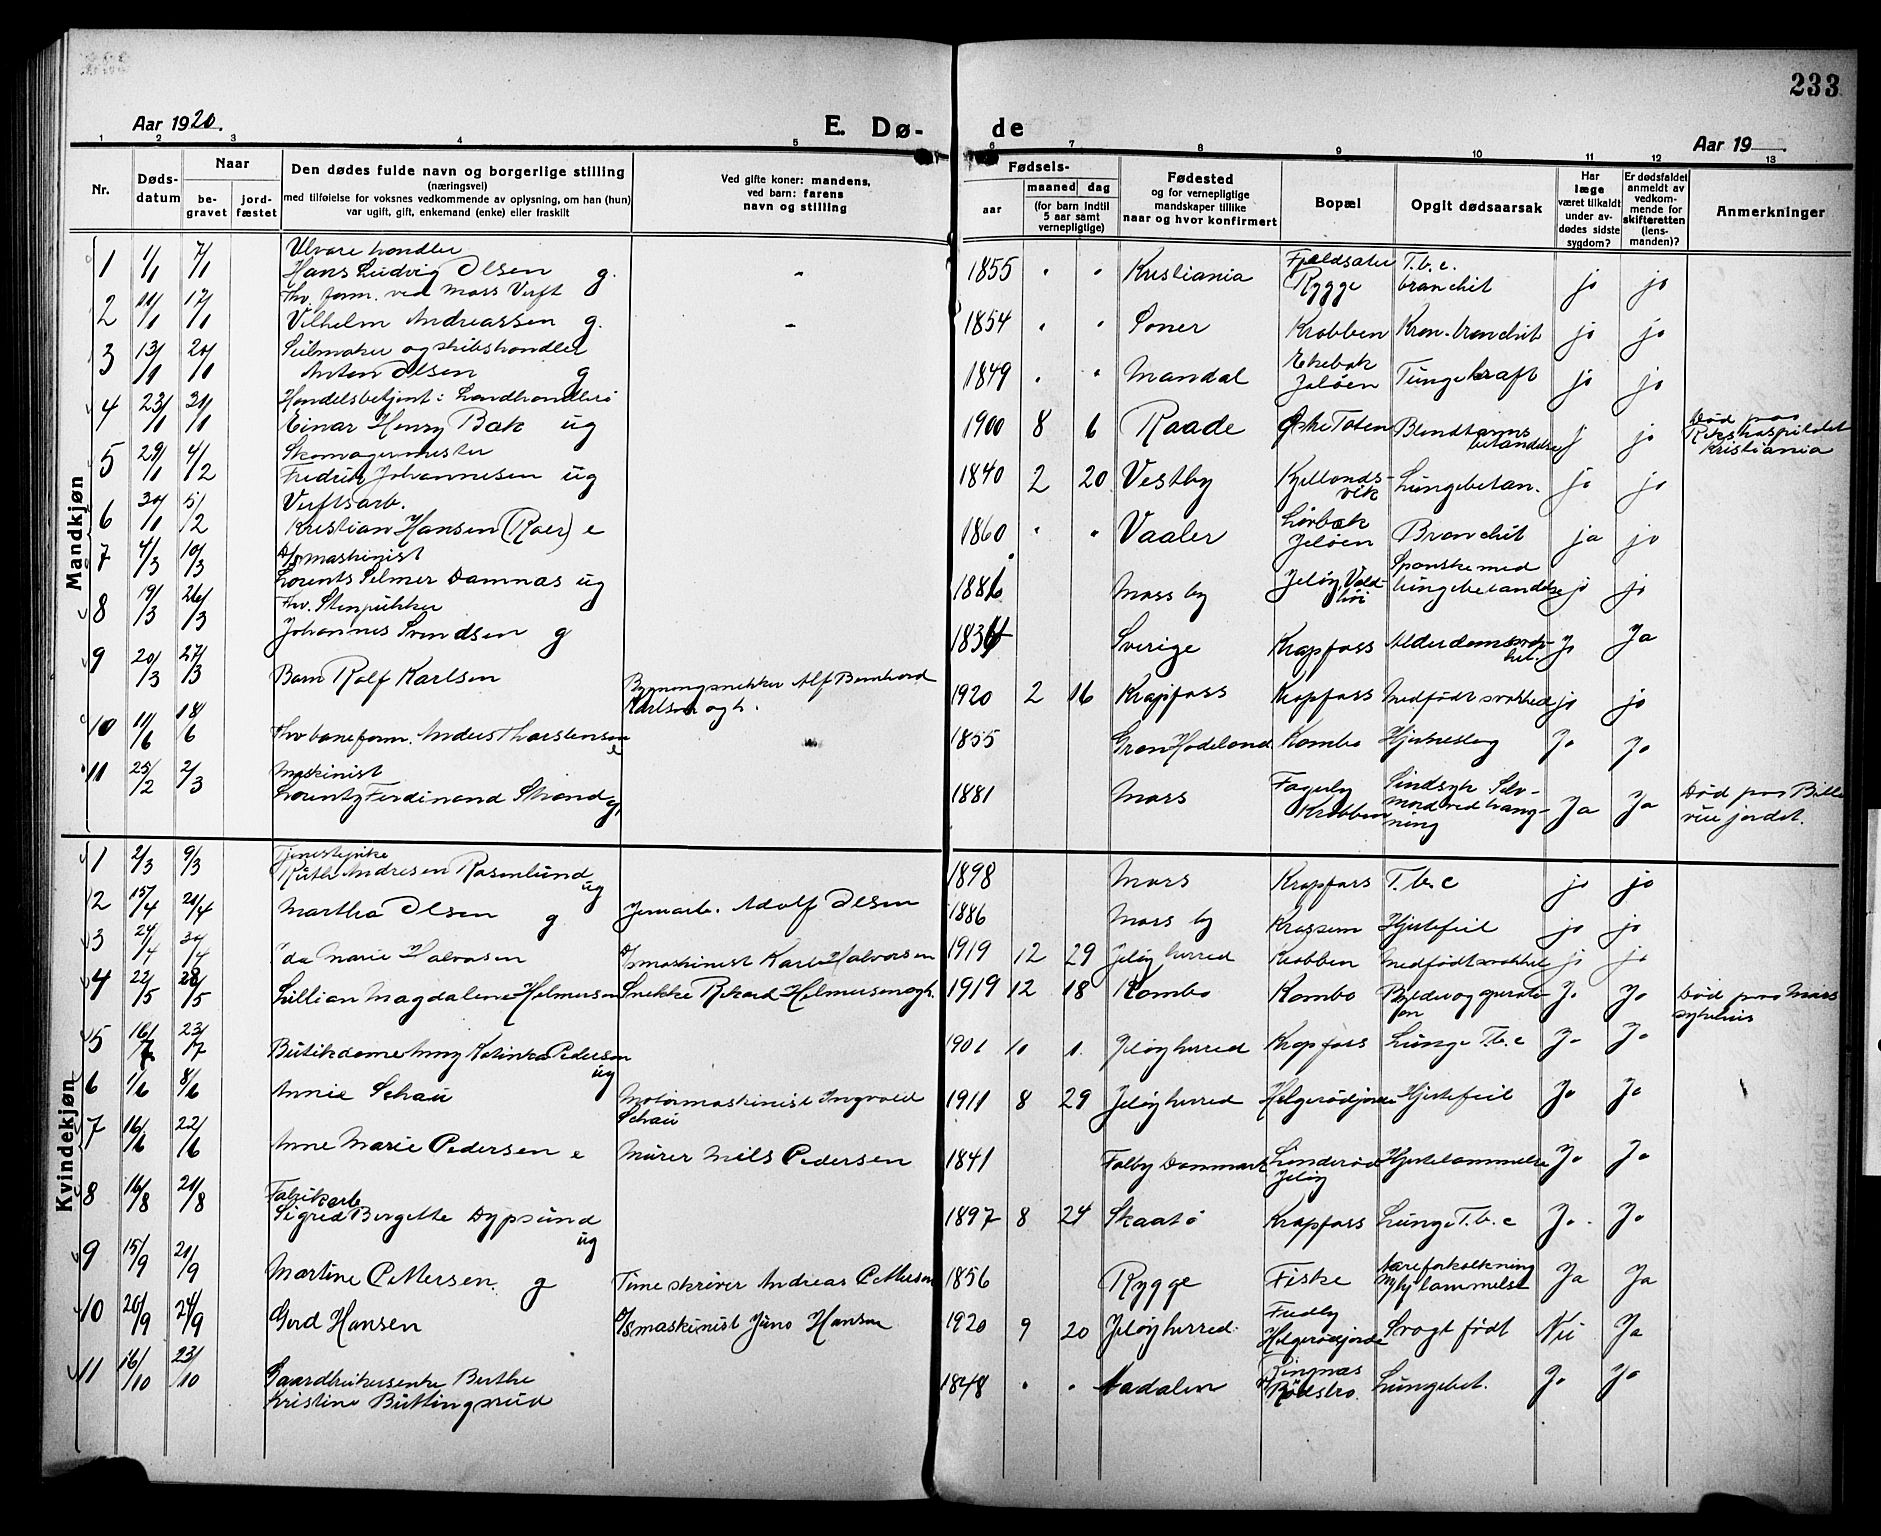 233
Aar 1920.
E. Dø-
de
Aar 19
1 2 3 4 5 6 7 8 9 10 11 12 13
Nr.
Døds-
datum
Naar
be-
gravet
jord-
fæstet
Den dødes fulde navn og borgerlige stilling
(næringsvei)
med tilføielse for voksnes vedkommende av oplysning, om han (hun)
var ugift, gift, enkemand (enke) eller fraskilt
Ved gifte koner: mandens,
ved barn: farens
navn og stilling
Fødsels-
aar
maaned
dag
(for barn indtil
5 aar samt
vernepligtige)
Fødested
og for vernepligtige
mandskaper tillike
naar og hvor konfirmert
Bopæl
Opgit dødsaarsak
Har
læge
været tilkaldt
under av-
dødes sidste
sygdom?
Er dødsfaldet
anmeldt av
vedkom-
mende for
skifteretten
(lens-
manden)?
Anmerkninger
Mandkjøn
1 1/1 7/1
Hans Ludvig Olsen g. - 1855 " " Kristiania Rygge T.b.c. bronchit jo jo
2 11/1 17/1 Thv. form. ved Moss Verft
Vilhelm Andreassen g. - 1854 " " Soner Krobben Kron. bronchit jo jo
3 13/1 20/1 Seilmaker og skibshandler
Anton Olsen g 1849 " " Mandal Ekebak Jeløen jo jo
4 23/1 31/1 Handelsbetjent i Landhandleri
Einar Henry Bæk ug 1900 8 6 Raade Østre Toten Blindtarms betændelse j jo Død paa Rikshospitalet Kristiania
5 29/1 4/2 Skomagermester
Fredrik Johannesen ug 1840 2 20 Vestby Kjellands- vik Lungebetæn. jo jo
6 30/1 5/2 Verftsarb.
Kristian Hansen (Roer) e 1860 " " Vaaler Jeløen Bronchit ja jo
7 4/3 10/3 D/S maskinist
Lorents Selmer Damnæs ug 1886 Moss by Jeløy Spanske med lungebetændelse jo jo
8 19/3 26/3 Thv. Stenpukker
Johannes Svendsen g Sverige Krapfoss Alderdomssvak- het. Jo Ja
9 20/3 27/3 Barn Rolf Karlsen Bygningssnekker Alf Bernhard Karlsen og h. 1920 2 16 Krapfoss Krapfoss Medfødt svakhed jo jo
10 11/6 18/6 Thv baneform. Anders Thorstensen e 1855 Gran Hadeland Kambo Hjerteslag Jo Jo
11 25/2 2/3 Maskinist
Lorentz Ferdinand Strand g, 1881 Moss Fagerly Krobben Sindsyk Selv- mord ved hæng- ning Ja Ja Død paa Bille vue jordet.
Kvindekjøn
1 2/3 9/3 Tjenestepike
Ruth Andresen Rosenlund ug 1898 Moss Krapfoss T.b.c jo jo
2 15/4 20/4 Martha Olsen g Jernarb. Adolf Olsen 1886 Moss by Krossern Hjertefeil jo jo
3 24/4 30/4 Ida Marie Halvorsen D/S maskinist Karl Halvorsen 1919 12 29 Jeløy herred Krobben Medfødt svakhet jo jo
4 22/5 28/5 Lillian Magdalene Helmersen Snekke Rikard Helmersen og h. 1919 12 18 Kambo Kambo Jo Jo Død paa Moss sykehus
5 16/7 23/7 Butikdame Anny Katinka Pedersen ug 1901 10 1. Jeløy herred Krapfoss Lunge T.b.c Jo Jo
6 1/6 8/6 Annie Schau Motormaskinist Ingvald Schau 1911 8 29 Jeløy herred Helgerødjordet Hjertefeil Jo Jo
7 16/6 22/6 Anne Marie Pedersen e Murer Nils Pedersen 1841 Falby Danmark Jeløy Hjertelammelse Jo Jo
8 16/8 21/8 Fabrikarb
Sigred Bergette Dypsund ug 1897 8 24 Skaatø Krapfoss Lunge T.b.c Jo. Jo
9 15/9 21/9 Martine Pettersen. g Timeskriver Andreas Pettersen 1856 Rygge Fiske Aareforkalkning Ja Ja
10 20/9 24/9 Gerd Hansen D/S maskinist Juno Hansen 1920 9 20 Jeløy herred. Helgerødjordet Svagt født Nei Ja
11 16/10 23/10 Gaardbrukerenke Berthe
Kristine Buttingsrud 1848 " " Aadalen Lungebet. Jo Jo